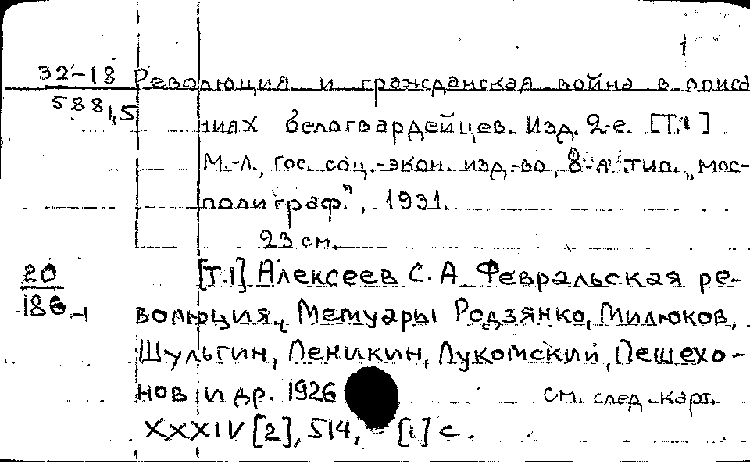 32-18 Революция и гражданская война в описа
588,5
ниях белогвардейцев. Изд. 2-е. [Т.1]
М.-Л., Гос. соц.-экон. изд-во, 8-я тип. „Мос-
полиграф", 1931.
23 см.
20 [Т.1] Алексеев С. А. Февральская ре-
186-1 волюция, Мемуары Родзянко, Милюков,
Шульгин, Деникин, Лукомский, Пешехо-
нов и др. 1926 см. след. карт.
XXXIV [2], 514, [1] с.